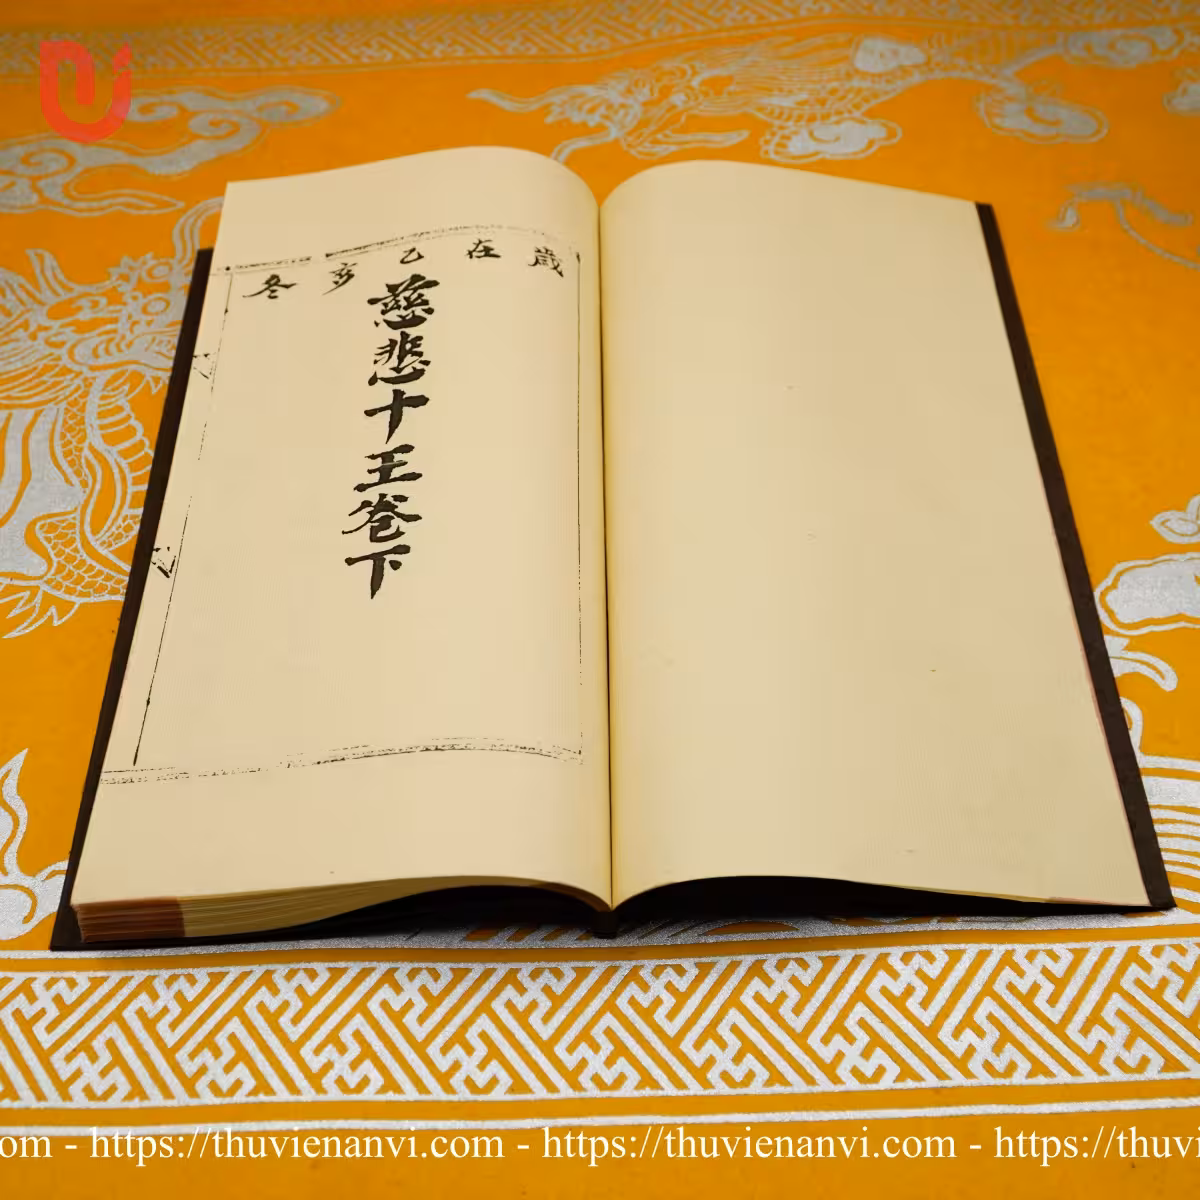 歲在乙亥冬
慈悲十王卷下
om - https://thuvienanvi.com - https://thuvienanvi.com - https://thuvi